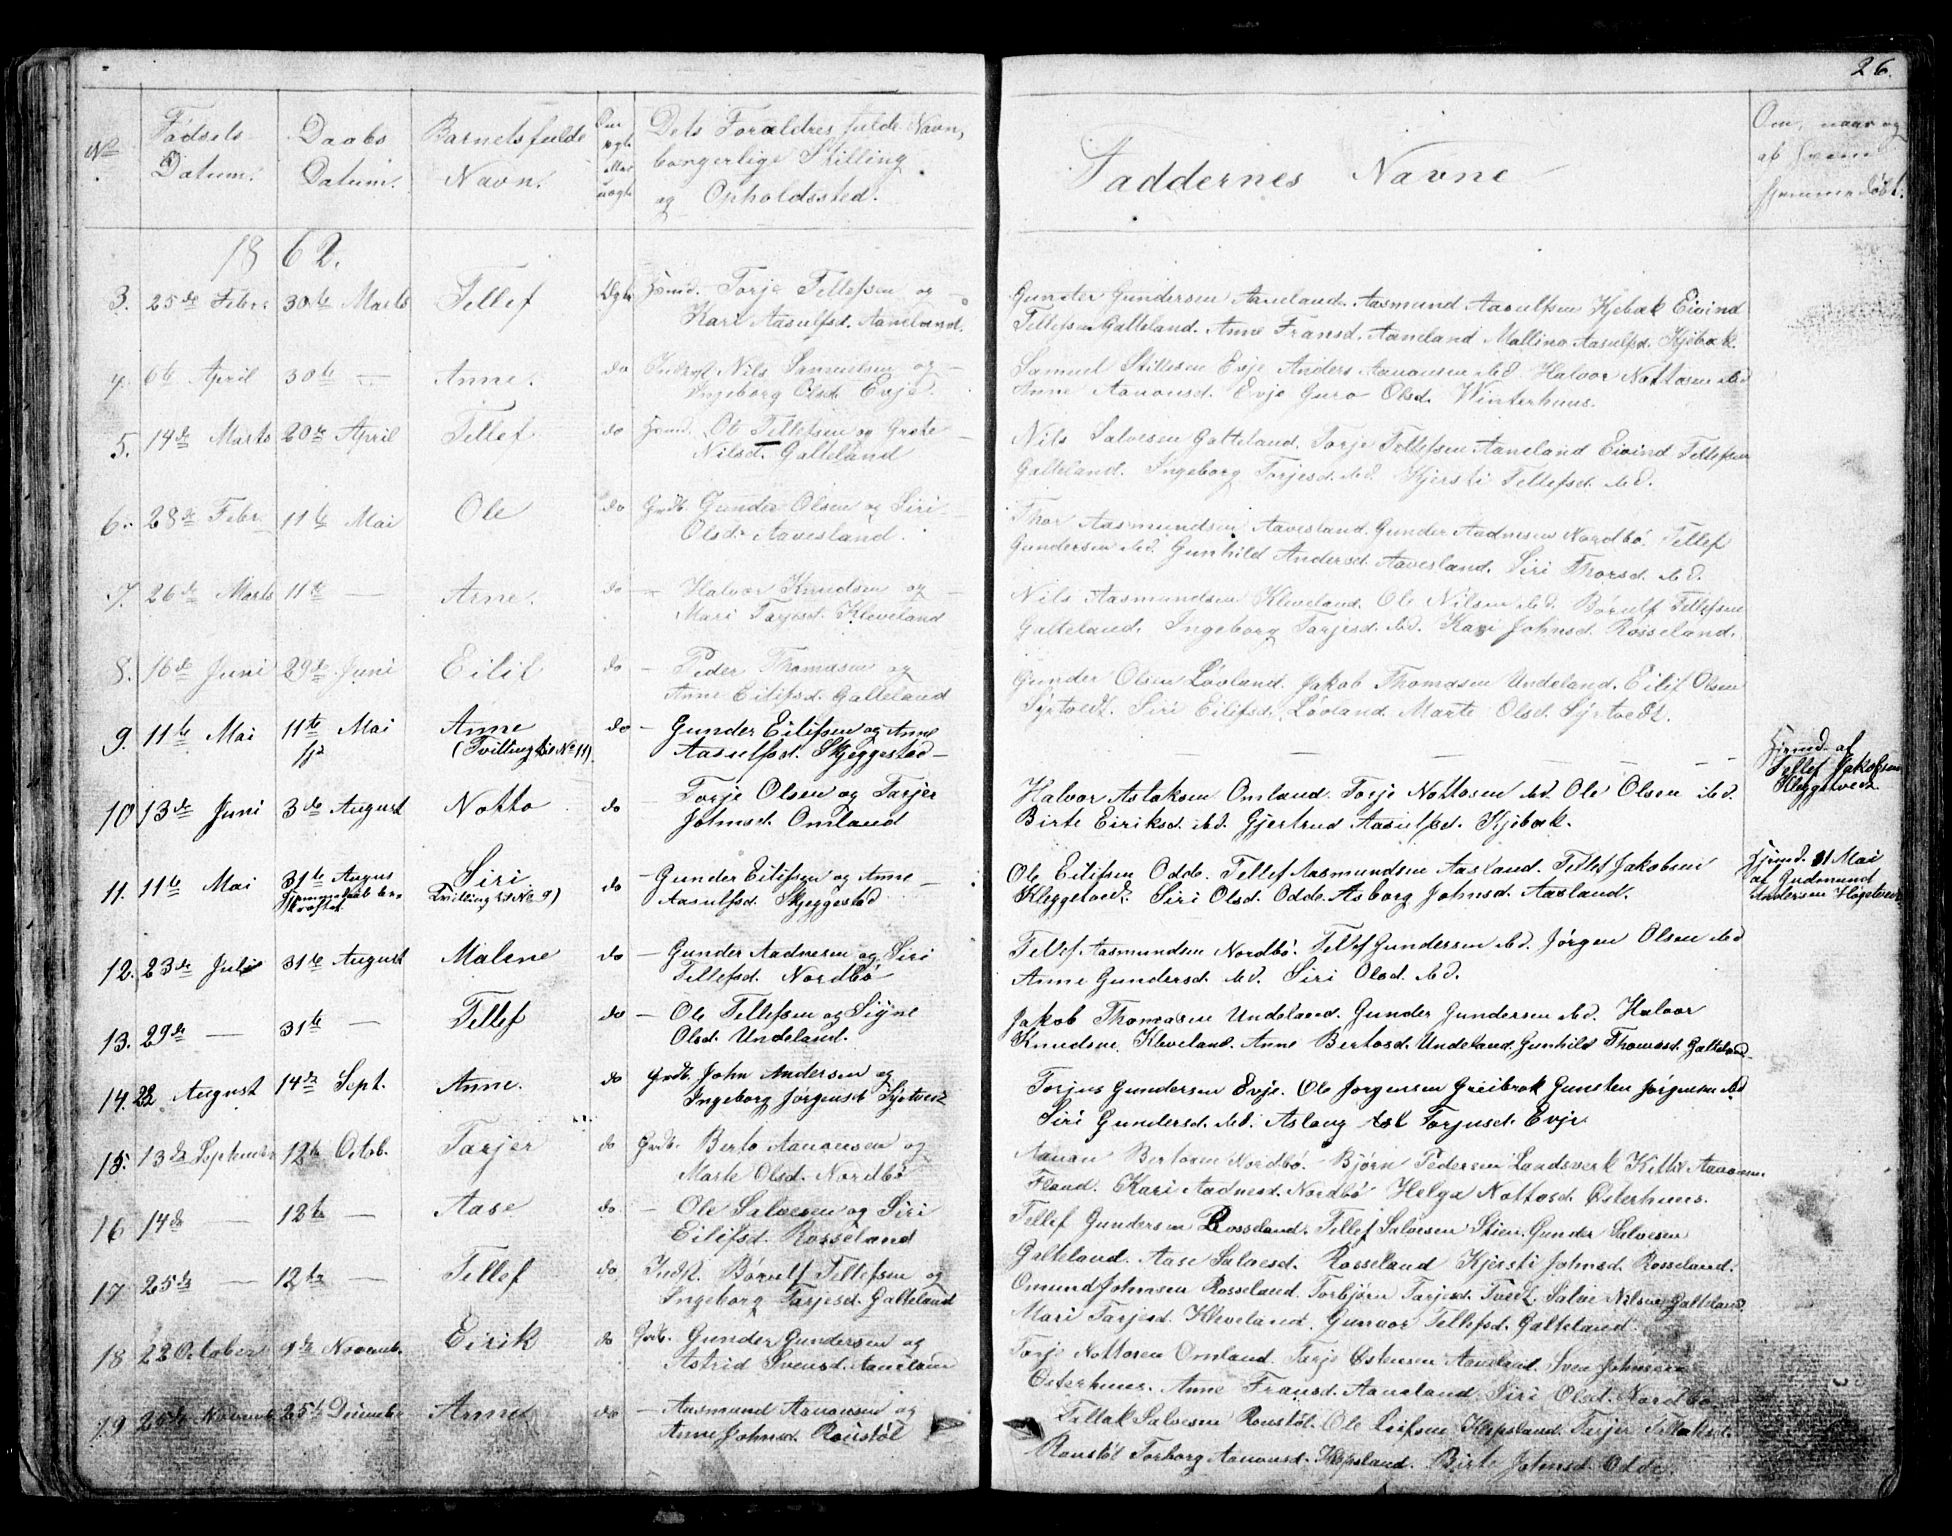 26.
No
Fødsels
Datum.
Daabs
Datum.
Barnets fulde
Navn.
Om ægte eller uægte
Dets Forældres fulde Navn,
borgerlige Stilling
og Opholdssted.
Faddernes Navne
Om, naar og
af hvem
hjemmedøbt.
1862.
3. 25de Febr. 30te Marts Tellef Ægte Torje Tellefsen og
Kari Aasulfsd. Aaneland.
Gunder Gundersen Aaneland. Aasmund Aasulfsen Kjebæk Eivind
Tellefsen Galteland. Anne Fransd. Aaneland Mallina Aasulfsd. Kjebæk.
4. 6te April 30te — Anne. do Nils Samuelsen og
Ingeborg Olsd. Evje.
Samuel Evje Anders Aanonsen ibd. Halvor Nottosen ibd
Anne Aanonsd. Evje Guro Olsd. Winterhuus.
5. 14de Marts 20de April Tellef do Ole Tellefsen og Grete
Nilsd. Galteland
Nils Salvesen Galteland. Torje Tellefsen Aaneland Eivind Tellefsen
Galteland. Ingeborg Torjesd. ibd. Kjersti Tellefsd. ibd.
6. 28de Febr. 11te Mai Ole do Gdb. Gunder Olsen og Siri
Olsd. Aavesland.
Thor Aasmundsen Aavesland. Gunder Aadnesen Nordbø. Tellef
Gundersen ibd. Gunhild Andersd. Aavesland. Siri Thorsd. ibd.
7. 26de Marts 11te — Arne. do — Halvor Knudsen og
Mari Tarjesd. Kleveland
Nils Aasmundsen Kleveland. Ole Nilsen ibd. Børulf Tellefsen
Galteland. Ingeborg Tarjesd. ibd. Kari Johnsd. Rosseland.
8. 16de Juni 29de Juni Eilif do — Peder Thomasen og
Anne Eilifsd. Galteland
Gunder Olsen Løvland. Jakob Thomasen Undeland. Eilif Olsen
Syrtvedt. Siri Eilifsd. Løvland. Marte Olsd. Syrtvedt.
9. 11te Mai 11te Mai Anne do — Gunder Eilifsen og Anne
hj (Tvilling til No 11). Aasulfsd. Skjeggestad —
Hjemd. af
Tellef Jakobsen
Kleggetvedt
10 13de Juni 3de August Notto do Torje Olsen og Tarjer
Johnsd. Omland
Halvor Aslaksen Omland. Torje Nottosen ibd. Ole Olsen ibd.
Birte Eiriksd. ibd. Gjertrud Aasulfsd. Kjebæk.
11. 11te Mai 31te Augus Siri do — Gunder Eilifsen og Anne
Hjemmedaab be- Tvilling til No 9)
kræftet. Aasulfsd. Skjeggestad
Ole Eilifsen Odde. Tellef Aasmundsen Aasland. Tellef Jakobsen
Kleggetvedt. Siri Olsd. Odde. Asborg Johnsd. Aasland.
Hjemd. 11 Mai
af Gudmund
Andersen Høgetvedt
12. 23de Juli 31te August Malene do — Gunder Aadnesen og Siri
Tellefsd. Nordbø
Tellef Aasmundsen Nordbø. Tellef Gundersen ibd. Jørgen Olsen ibd
Anne Gundersd. ibd. Siri Olsd. ibd.
13. 29de — 31te — Tellef do — Ole Tellefsen og Signe
Olsd. Undeland.
Jakob Thomasen Undeland. Gunder Gundersen ibd. Halvor
Knudsen Kleveland. Anne Bertosd. Undeland. Gunhild Thomasd. Galteland
14. 22 August 14de Sept. Anne. do Gdb. John Andersen og
Ingeborg Jørgensd Syrtvedt
Torjus Gundersen Evje. Ole Jørgensen Greibrok Gunsten Jørgensen ibd
Siri Gundersd. ibd. Aslaug Torjusd. Evje
15. 13de Septembr 12te Octob. Tarjer do Gdb. Berto Aanonsen og
Marte Olsd. Nordbø
Aanon Bertosen Nordbø. Bjørn Pedersen Landsverk Kittil Aanonsen
Fland. Kari Aadnesd. Nordbø Helga Nottosd. Østerhuus.
16 14de — 12te — Aase do — Ole Salvesen og Siri
Eilifsd. Rosseland
Tellef Gundersen Rosseland. Tellef Salvesen Gunder Salvesen
Galteland. Aase Salvesd. Rosseland Kjersti Johnsd. Rosseland.
17 25de — 12te — Tellef do Indst. Børulf Tellefsen og
Ingeborg Tarjesd. Galteland
Omund Johnsen Rosseland. Torbjørn Tarjesd. Tvedt. Salve Nilsen Galteland
Mari Tarjesd. Kleveland. Gunvor Tellefsd. Galteland.
18 22 October 9de Novemb. Eirik do Gdb. Gunder Gundersen og
Astrid Svensd. Aaneland
Torje Nottosen Omland. Tarje Østensen Aaneland Sven Johnsen
Østerhuus. Anne Fransd. Aaneland. Siri Olsd. Nordbø
19 25de Novemb 25de Decembr Anne do — Aasmund Aanonsen og
Anne Johnsd. Ronstøl
Tellak Salvesen Ronstøl. Ole Leifsen Kløpsland. Tarjer Tellaksd.
Ronstøl Torborg Aanonsd. Kløpsland. Birte Johnsd. Odde.